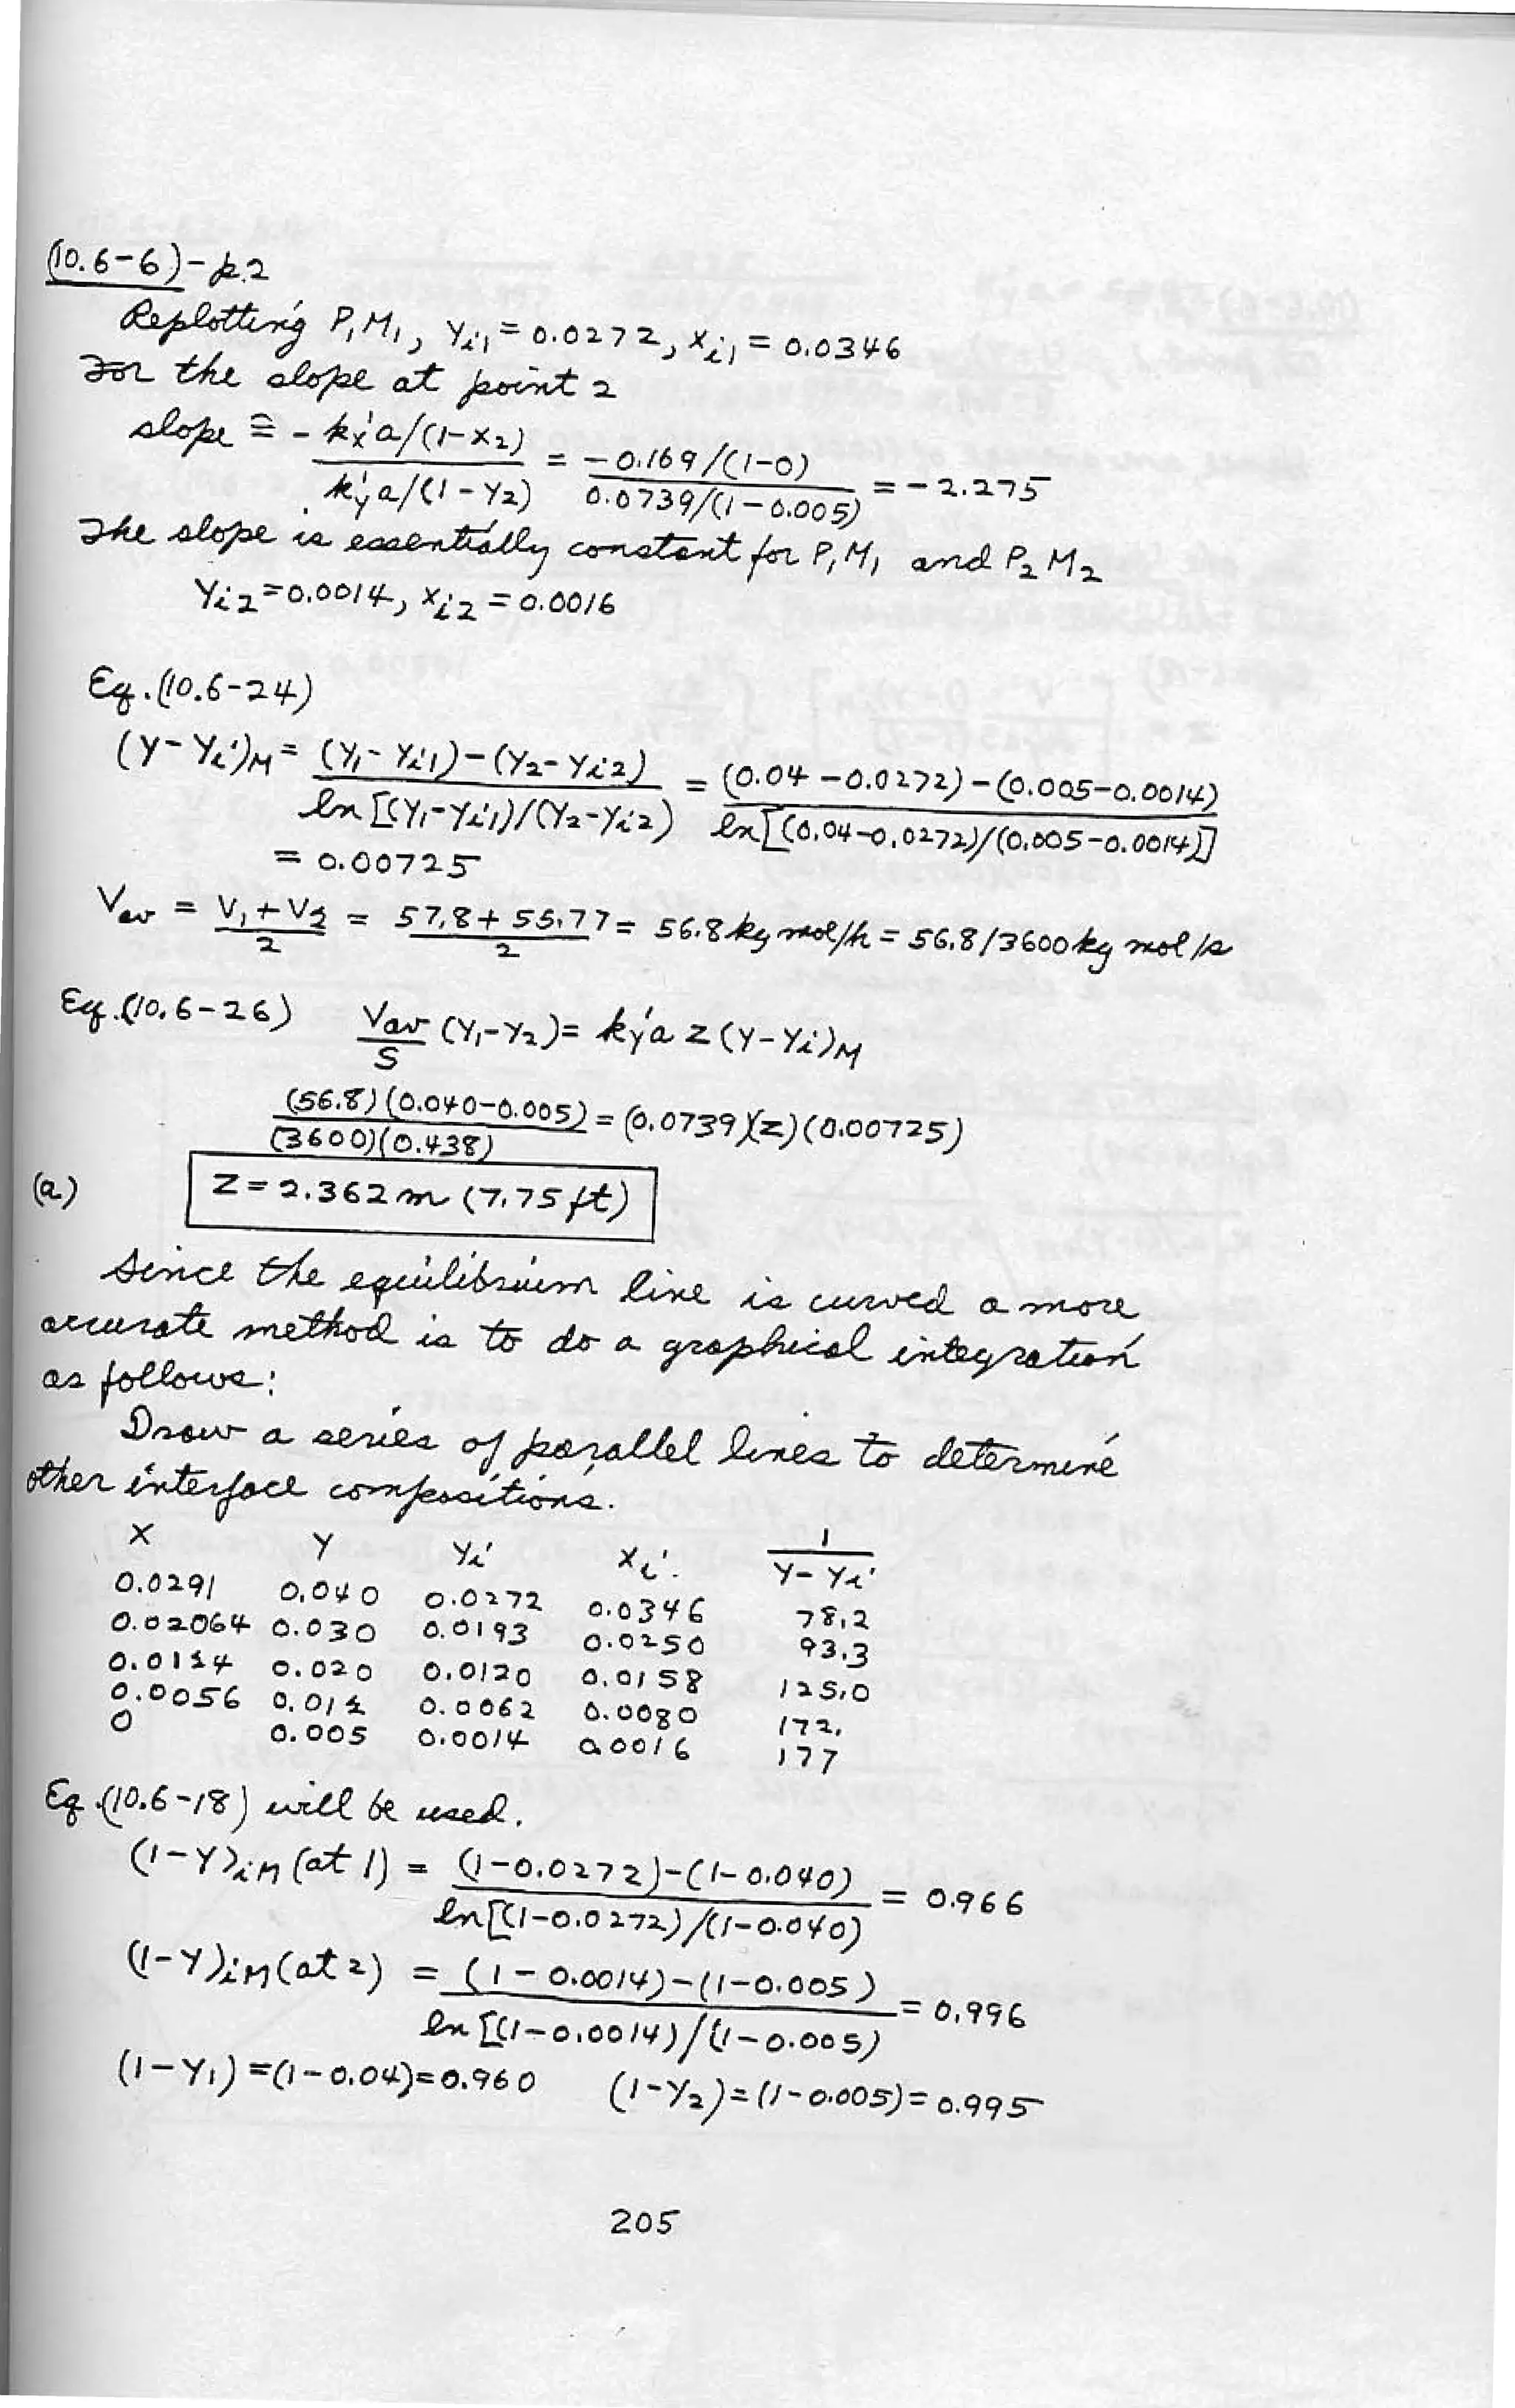 (10.6-6)-p.2
Replotting P₁M₁, y_i1 = 0.0272, x_i1 = 0.0346
For the slope at point 2
slope ≅ - k'x a/(1-x₂) / k'y a/(1-y₂) = -0.169/(1-0) / 0.0739/(1-0.005) = -2.275
The slope is essentially constant for P₁M₁ and P₂M₂
y_i2 = 0.0014, x_i2 = 0.0016
Eq. (10.6-24)
(y-y_i)_M = (y₁-y_i1)-(y₂-y_i2) / ln[(y₁-y_i1)/(y₂-y_i2) = (0.04-0.0272)-(0.005-0.0014) / ln[(0.04-0.0272)/(0.005-0.0014)]
= 0.00725
V_av = V₁+V₂ / 2 = 57.8+55.77 / 2 = 56.8 kg mol/h = 56.8/3600 kg mol/s
Eq. (10.6-26) V_av/S (y₁-y₂) = k'y a z (y-y_i)_M
(56.8)(0.040-0.005) / (3600)(0.438) = (0.0739)(z)(0.00725)
(a) z = 2.362 m (7.75 ft)
Since the equilibrium line is curved a more
accurate method is to do a graphical integration
as follows:
Draw a series of parallel lines to determine
other interface compositions.
x y y_i x_i 1/(y-y_i)
0.0291 0.040 0.0272 0.0346 78.2
0.02064 0.030 0.0193 0.0250 93.3
0.020 0.0120 0.0158 125.0
0.0056 0.0062 0.0080 172.
0 0.005 0.0014 0.0016 177
Eq. (10.6-18) will be used.
(1-y)_iM (at 1) = (1-0.0272)-(1-0.040) / ln[(1-0.0272)/(1-0.040) = 0.966
(1-y)_iM (at 2) = (1-0.0014)-(1-0.005) / ln[(1-0.0014)/(1-0.005) = 0.996
(1-y₁) = (1-0.04) = 0.960 (1-y₂) = (1-0.005) = 0.995
205